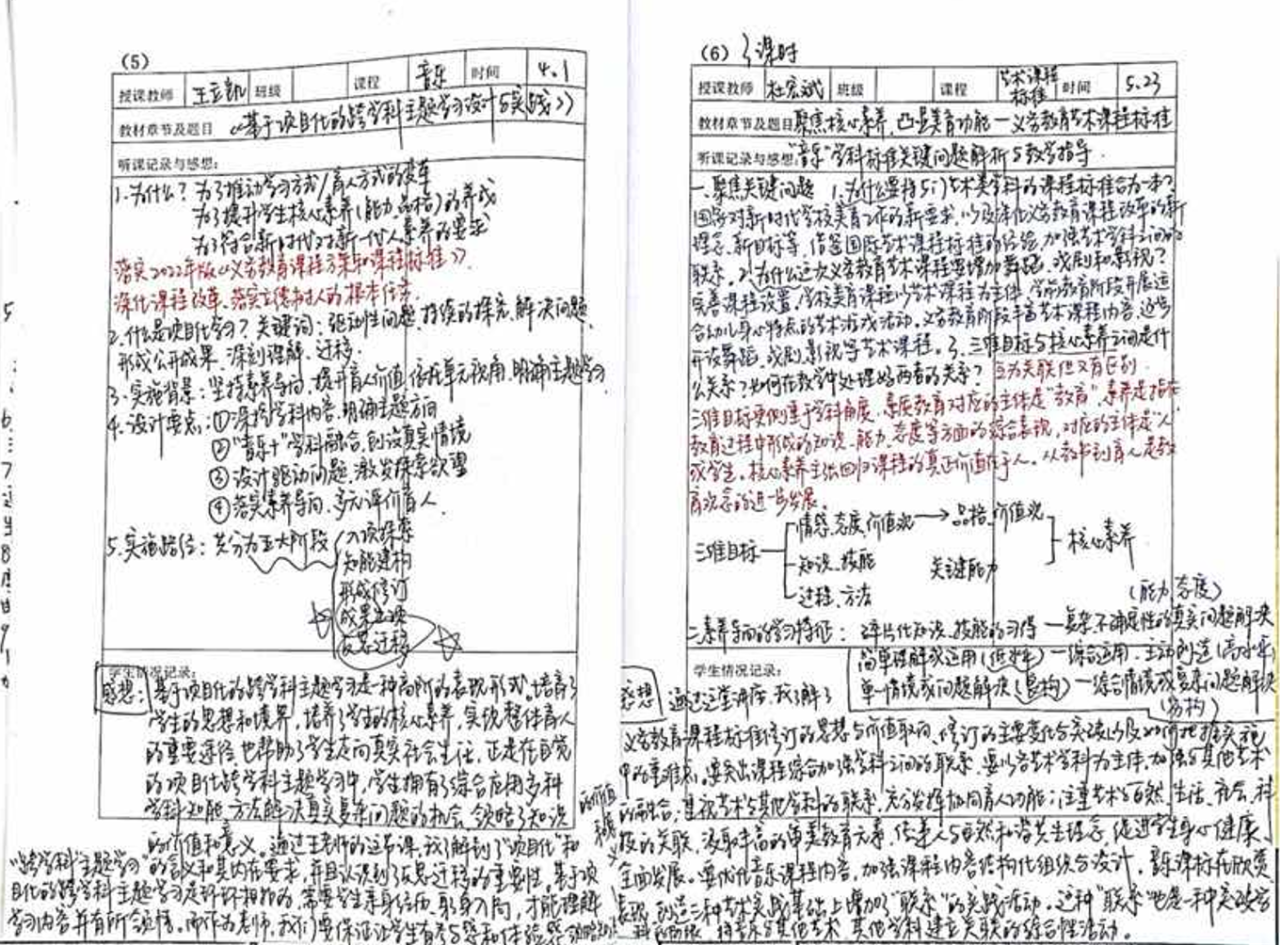 (5)
授课教师 王立凯 班级 课程 音乐 时间 4.1
教材章节及题目 《基于项目化的跨学科主题学习设计与实践》
听课记录与感想:
1.为什么? 为了推动学习方式/育人方式的变革
为了提升学生核心素养(能力,品格)的养成
为了符合新时代对新一代人素养的要求
落实2022年版《义务教育课程方案和课程标准》
深化课程改革、落实立德树人的根本任务
2.什么是项目化学习? 关键词: 驱动性问题、持续的探究、解决问题、
形成公开成果、深刻理解、迁移.
3.实施背景: 坚持素养导向、提升育人价值、单元视角、明确主题学习
4.设计要点: ①深挖学科内容,明确主题方向
②"音乐+"学科融合,创设真实情境
③设计驱动问题,激发探索欲望
④落实素养导向,多元评价育人
5.实施路径: 共分为五大阶段 入项探索
知能建构
形成修订
成果出项
反思迁移
学生情况记录:
感想: 基于项目化的跨学科主题学习是一种高阶的表现形式。培育了
学生的思想和境界,培养了学生的核心素养,实现整体育人
的重要途径,也帮助了学生走向真实社会生活,正是在自觉
的项目化跨学科主题学习中,学生拥有了综合应用多种
学科知能、方法解决真实复杂问题的机会,领略了知识
的价值和意义。通过王老师的这节课,我了解到了"项目化"和
"跨学科"主题学习"的含义和其内在要求,并且认识到了反思迁移的重要性。基于项
目化的跨学科主题学习是环环相扣的,需要学生亲身经历,躬身入局,才能理解
学习内容并有所领悟。而作为老师,我们要保证让学生有参与感和体验感
(6) 3课时
授课教师 杜宏斌 班级 课程 艺术课程标准 时间 5.23
教材章节及题目 聚焦核心素养,凸显美育功能—义务教育艺术课程标准
听课记录与感想: "音乐"学科标准关键问题解析与教学指导.
一、聚焦关键问题 1.为什么要将5门艺术类学科的课程标准合为一本?
国家对新时代学校美育工作的新要求,以及深化义务教育课程改革的新
理念、新目标等,借鉴国际艺术课程标准的经验,加强艺术学科之间的
联系。2.为什么这次义务教育艺术课程要增加舞蹈、戏剧和影视?
完善课程设置,学校美育课程以艺术课程为主体,学前教育阶段开展适
合幼儿身心特点的艺术游戏活动,义务教育阶段丰富艺术课程内容,逐步
开设舞蹈、戏剧、影视等艺术课程。3.三维目标与核心素养之间是什
么关系?如何在教学中处理好两者的关系? 互为关联但又有区别.
三维目标更侧重于学科角度,素质教育对应的主体是"教育",素养是指在
教育过程中形成的知识、能力、态度等方面的综合表现,对应的主体是"人"
或学生。核心素养主张回归课程的真正价值在于人,从教书到育人是教
育观念的进一步发展.
情感、态度、价值观 → 品格、价值观
三维目标 知识、技能 关键能力 核心素养
过程、方法
(能力、态度)
二、素养导向的学习特征: 碎片化知识、技能的习得 — 复杂、不确定性的真实问题解决
学生情况记录: 简单理解或运用(低水平) — 综合运用、主动创造(高水平)
单一情境或问题解决(良构) — 综合情境或复杂问题解决
(劣构)
感想 通过这堂讲座,我了解了
义务教育课程标准修订的思想与价值取向、修订的主要变化与突破以及如何把握实施
中的重难点。要突出课程综合,加强学科之间的联系,要以各艺术学科为主体,加强与其他艺术
的融合;重视艺术与其他学科的联系,充分发挥协同育人功能;注重艺术与自然、生活、社会、科
技的关联,汲取丰富的审美教育元素,传递人与自然和谐共生理念,促进学生身心健康、
全面发展。要优化音乐课程内容,加强课程内容结构化组织与设计,音乐课标在欣赏、
表现、创造三种艺术实践基础上增加了"联系"的实践活动。这种"联系"也是一种突破学
科界限,将音乐与其他艺术、其他学科建立关联的综合性活动。